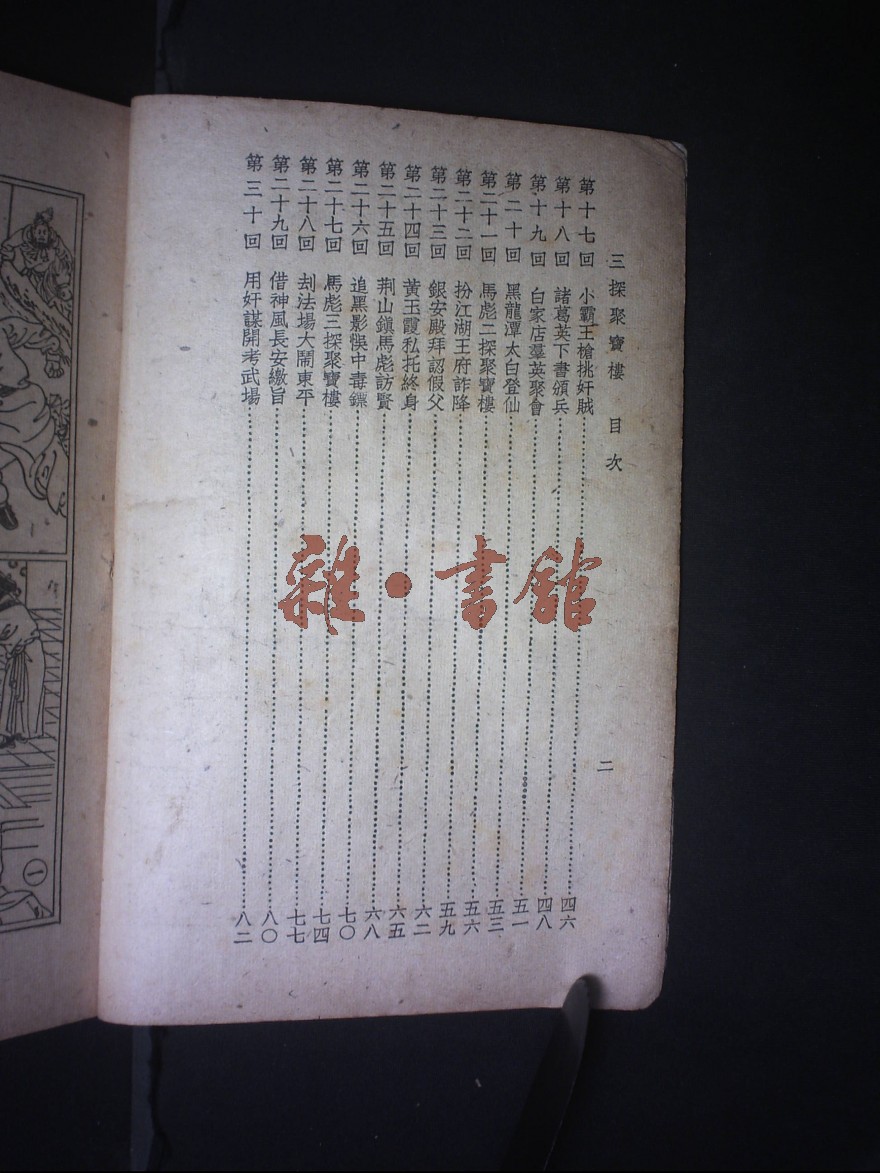 三探聚寶樓 目次 二
第十七回 小霸王槍挑奸賊 四六
第十八回 諸葛英下書頒兵 四八
第十九回 白家店羣英聚會 五一
第二十回 黑龍潭太白登仙 五三
第二十一回 馬彪二探聚寶樓 五六
第二十二回 扮江湖王府詐降 五九
第二十三回 銀安殿拜認假父 六二
第二十四回 黃玉霞私托終身 六五
第二十五回 荆山鎭馬彪訪賢 六八
第二十六回 追黑影悞中毒鏢 七〇
第二十七回 馬彪三探聚寶樓 七四
第二十八回 刦法場大鬧東平 七七
第二十九回 借神風長安繳旨 八〇
第三十回 用奸謀開考武場 八二
雜·書館
①